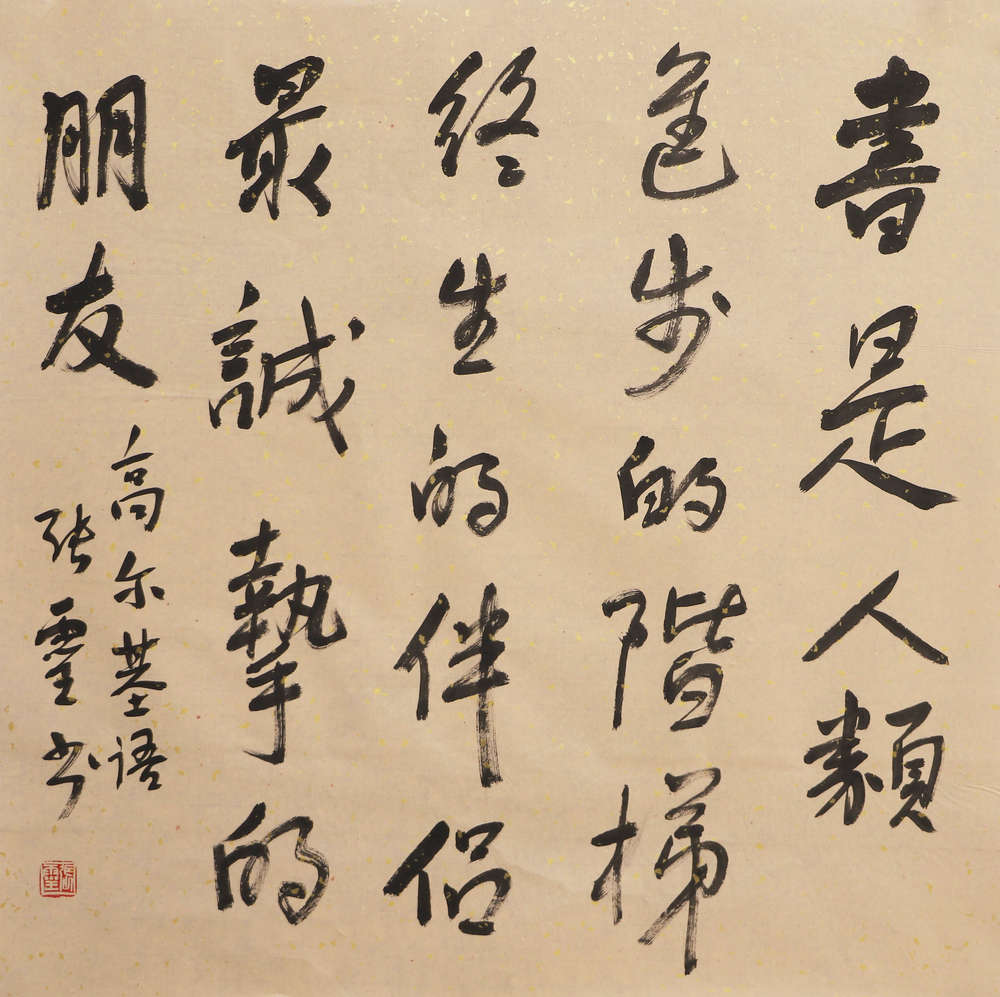 書是人類
進步的階梯
終生的伴侣
最誠摯的
朋友
高尔基语
张靈书